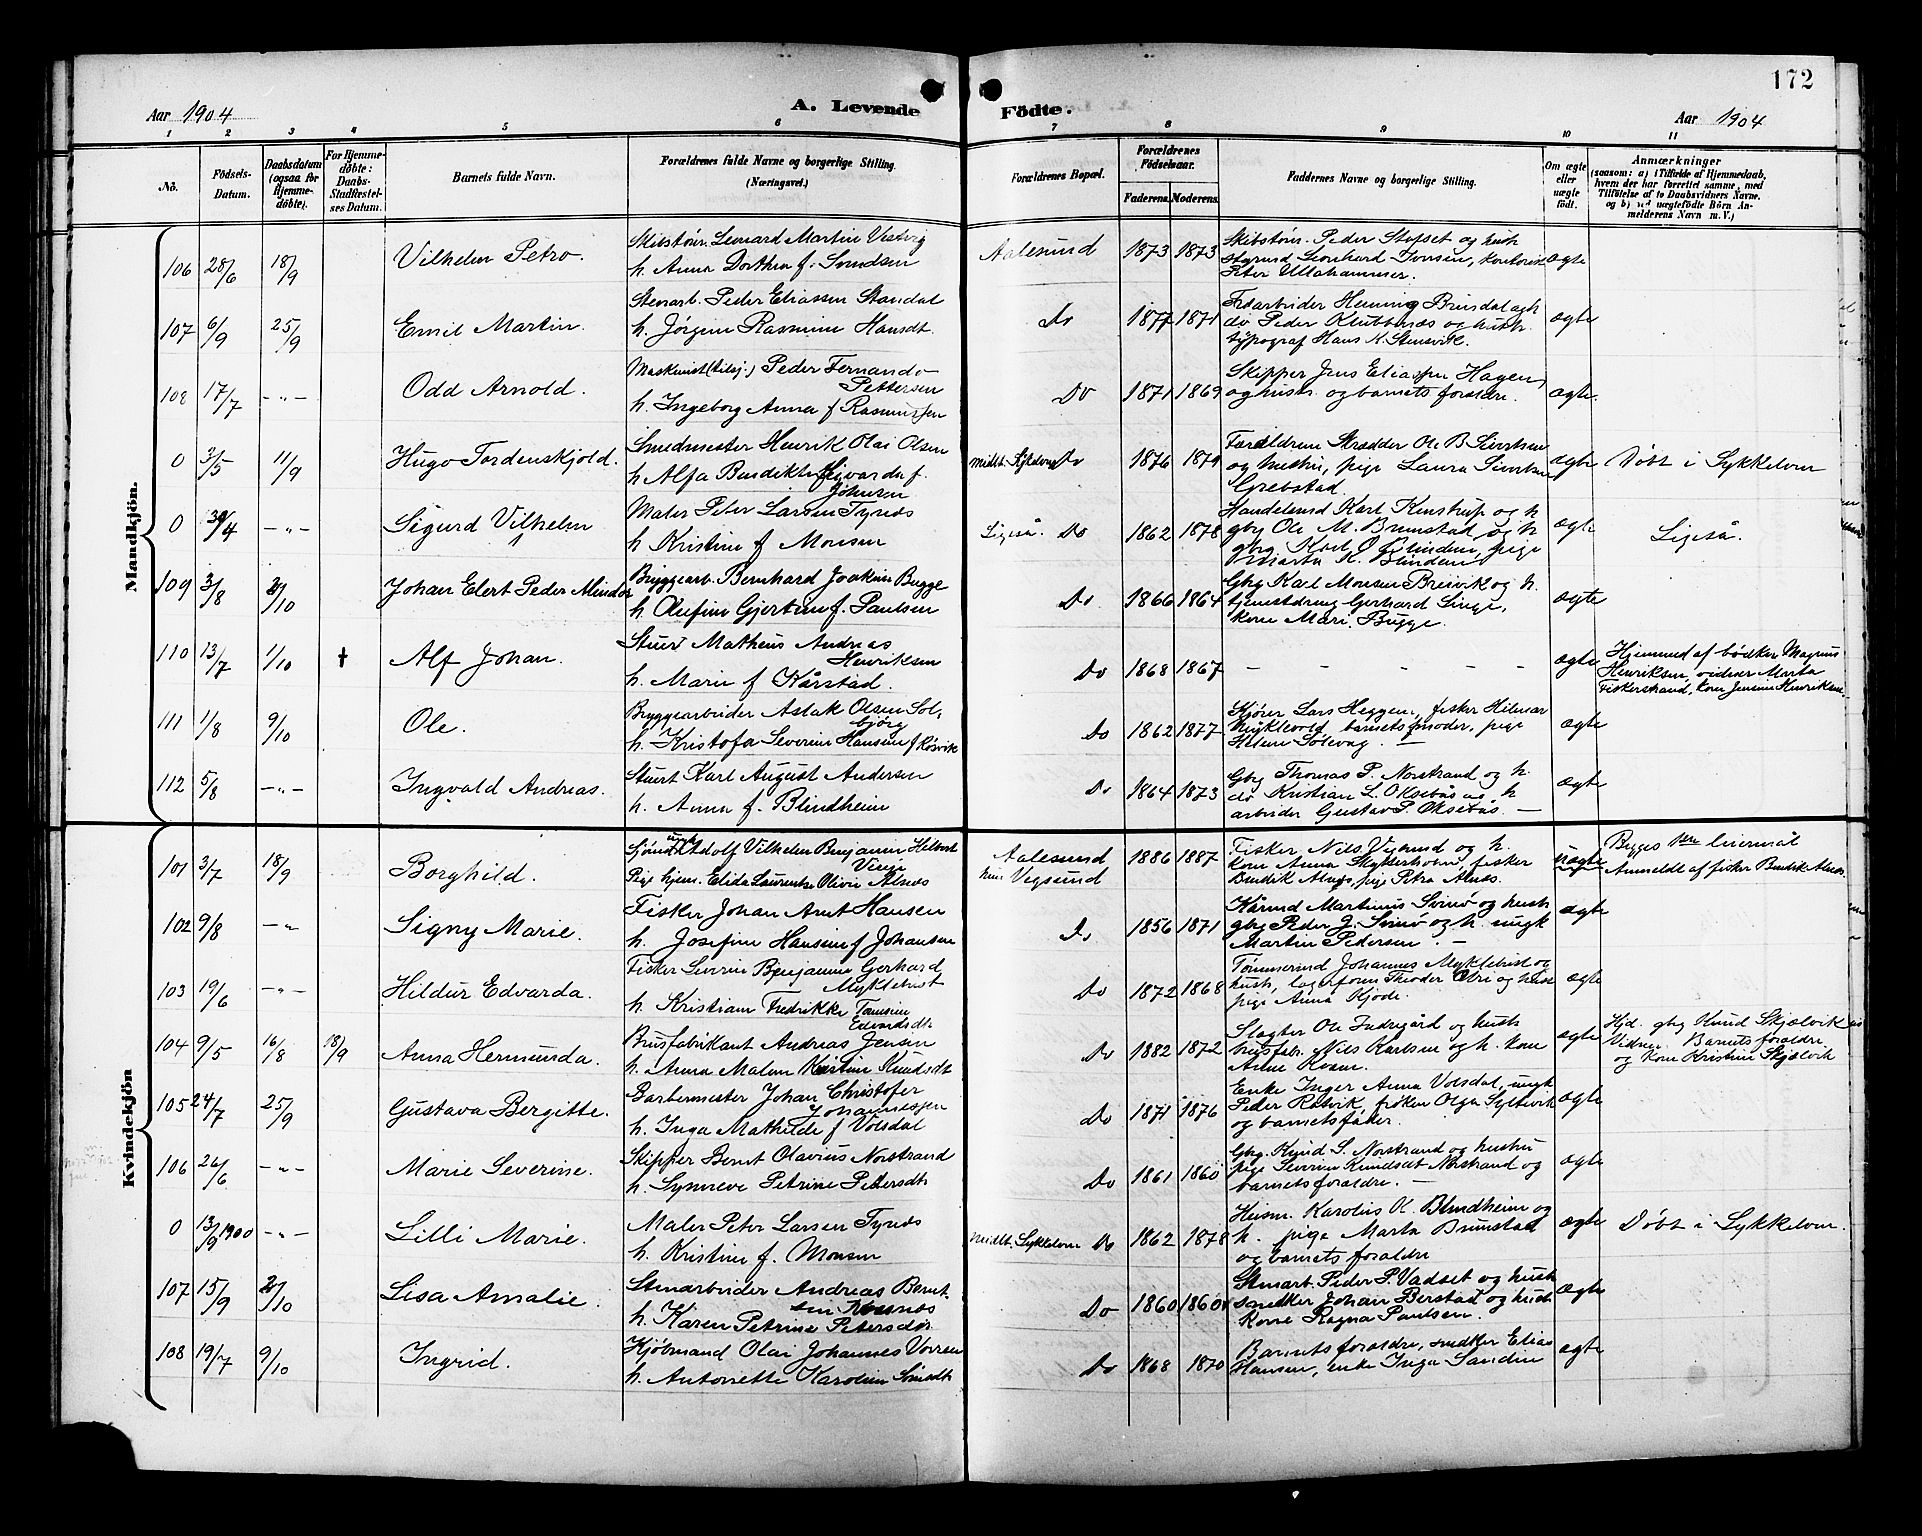 172
Aar 1904
A. Levende Födte.
Aar 1904
1 2 3 4 5 6 7 8 9 10 11
No. Födsels-Datum. Daabsdatum (ogsaa for Hjemmedöbte). For Hjemmedöbte: Daabs-Stadfæstelses Datum. Barnets fulde Navn. Forældrenes fulde Navne og borgerlige Stilling. (Næringsvei.) Forældrenes Bopæl. Forældrenes Födselsaar. Faderens. Moderens. Faddernes Navne og borgerlige Stilling. Om ægte eller uægte födt. Anmærkninger (saasom: a) i Tilfælde af Hjemmedaab, hvem der har forrettet samme, med Tilföielse af to Daabsvidners Navne, og b) ved uægtefödte Börn Anmelderens Navn m. V.)
Mandkjön.
106 28/6 18/9 Vilhelm Petro.
Skibstöm. Leonard Martin Vestvig
h. Anna Dorthea f. Svendsen
Aalesund 1873 1873
Skibstöm. Peder Stofset og hust
styrmd Leonhard Jonsen, kontorist
Peter Ullahammer.
ægte
107 6/9 25/9 Emil Martin.
Stenarb. Peder Eliassen Standal
h. Jörgine Rasmine Hansdt.
Do 1877 1871
Peder Klubbenæs og hustr.
typograf Hans K. Stensvik.
ægte
108 17/7 -"- Odd Arnold.
Maskinist Peder Fernando
Pettersen
h. Ingeborg Anna f Rasmussen
Do 1871 1869
Skipper Jens Eliassen Hagen
og hustr. og barnets forældre.
ægte
0 3/5 11/9 Hugo Tordenskjold.
Smedmester Henrik Olai Olsen
h. Alfa Bendikte f.
Johnsen
midlt. Sykkelven Do 1876
Forældrene Skrædder Ole B Sivertsen
og hustru, pige Laura Sivertsen
Grebstad.
ægte Döbt i Sykkelven
0 -"- Sigurd Vilhelm
Maler Peter Larsen Tynæs
h Kristine f Monsen
Ligeså. Do 1862 1878
Handelsmd Karl Kenstrup og h
gbrg Ole M. Brunstad og h.
ægte Ligeså.
109 3/8 Johan Elert Peder Alindor
Bryggearb. Bernhard Joakim Bugge
h Olufine Gjertine f. Paulsen
Do. 1866 1864
Gbrg Karl Monsen Breivik og h.
tjenestdreng Gerhard Singe,
kone Mari Bugge.
ægte
110 13/7 1/10 Alf Johan.
Stuert Matheus Andreas
Henriksen
h. Marie f Kårstad.
Do 1868 1867
- - - - -
ægte
Hjemmed af bödker Magnus
Henriksen, vidner Marta
Fiskerstrand, kone Jensine Henriksen.
111 1/8 9/10 Ole.
Bryggearbeider Aslak Olsen Sol-
björg
h. Kristofa Severine Hansen f. Rösvik
Do 1862 1877
Kjörer Lars Heggen, fisker Hilmar
Myklebold, barnets moder, pige
Helene Solevåg. -
ægte
112 5/8 -"- Ingvald Andreas.
Stuert Karl August Andersen
h. Anna f. Blindheim
Do 1864 1873
Gbrg Thomas P. Norstrand og h.
do Kristian L. Oksebås og h
arbeider Gustav P. Oksebås. -
ægte
Kvindekjön
101 3/7 18/9 Borghild.
ungk Adolf Vilhelm Benjamin
Pige hjem. Elida Laurentse Olivie Alnæs
Aalesund
Vegsund 1886 1887
Fisker Nils Vegsund og h.
kone Anna fisker
Bendik Alnæs, pige Petra Alnæs.
uægte
Begges 1ste leiermål
Anmeldt af fisker Bendik Alnæs.
102 9/8 -"- Signy Marie.
Fisker Johan Arnt Hansen
h. Josefine Hansine f Johansen
Do 1856 1871
Kårmd Martinus Svinö og hust
gbrg Peder J. Svinö og h. ungk
Martin Pedersen. -
ægte
103 19/6 -"- Hildur Edvarda.
Fisker Severin Benjamin Gerhard
Myklebust
h. Kristiane Fredrikke Tomine
Edvardsdt
Do 1872 1868
Tömmermd Johannes Myklebust og
hust, lagerform. Theodor og hust
pige Anna Kjode.
ægte
104 9/5 16/8 18/9 Anna Hermunda.
Brusfabrikant Andreas Jensen
h. Anna Malene Kristine Knudsdt
Do 1882 1872
Slagter Ole og hust
brusfabr. Nils Karlsen og h. kone
ægte
Hjd. gbrg Knud Skjelvik
Vidner. Barnets forældre
og kone Kristine Skjelvik
105 24/7 25/9 Gustava Bergitte.
Barbermester Johan Christofer
Johannessen
h. Inga Mathilde f Volsdal
Do 1871 1876
Enke Inger Anna Volsdal, ungk
Peder Ratvik, fröken Olga Syltevik
og barnets fader.
ægte
106 26/6 -"- Marie Severine.
Skipper Bernt Olavius Norstrand
h. Synneve Petrine Petersdt
Do 1861 1860
Gbrg. Knud S. Norstrand og hustru
pige Severine Knudsdt Norstrand og
barnets forældre. -
ægte
0 13/9 1900 -"- Lilli Marie.
Maler Peter Larsen Tynæs
h. Kristine f. Monsen
midlt. Sykkelven Do 1862 1878
Husm. Karolus K. Blindheim og
h. pige Marta Brunstad
og barnets forældre
ægte Döbt i Sykkelven.
107 15/9 Lisa Amalie.
Stenarbeider Andreas Bernt-
sen
h. Karen Petrine Petersdtr.
Do 1860 1860
Stenarb. Peder P. Vadset og hust
snedker Johan Berstad og hust
kone Ragna Paulsen.
ægte
108 19/7 9/10 Ingrid.
Kjöbmand Olai Johannes Vorren
h. Antonette Karoline
Do 1868 1870
Barnets forældre, snedker Elias
Hansen, enke Inga Sanden
ægte